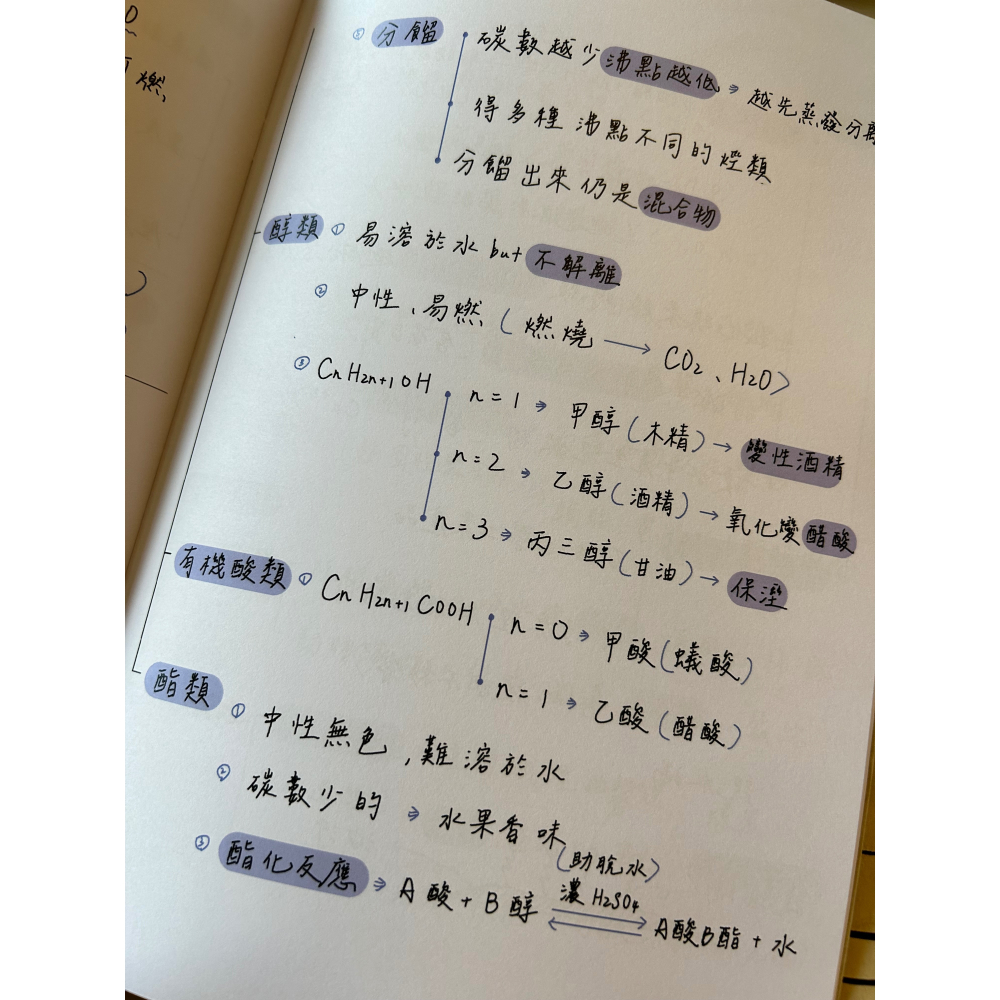 燃,
③ 分餾 • 碳數越少沸點越低 ⇒ 越先蒸發分離
• 得多種沸點不同的烴類
• 分餾出來仍是混合物
醇類 ① 易溶於水 but 不解離
② 中性、易燃(燃燒 → CO2、H2O)
③ CnH2n+1OH • n=1 ⇒ 甲醇(木精) → 變性酒精
• n=2 ⇒ 乙醇(酒精) → 氧化變醋酸
• n=3 ⇒ 丙三醇(甘油) → 保溼
有機酸類 ① CnH2n+1COOH • n=0 ⇒ 甲酸(蟻酸)
• n=1 ⇒ 乙酸(醋酸)
酯類 ① 中性無色,難溶於水
② 碳數少的 ⇒ 水果香味
(助脫水)
③ 酯化反應 ⇒ A酸+B醇 濃H2SO4 ⇌ A酸B酯+水